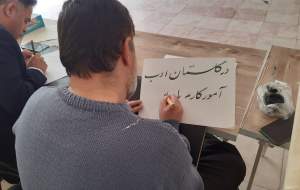 در گلستان ادب
آموزگارم